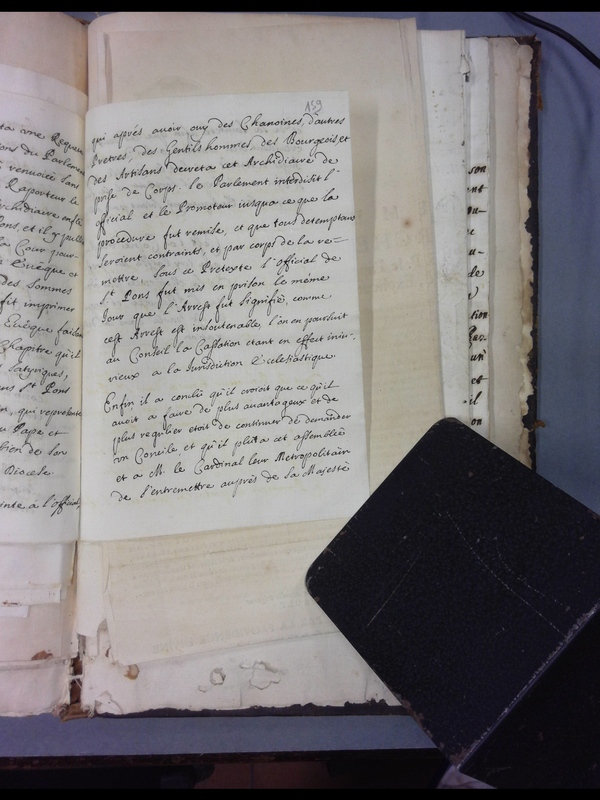 159
qui aprés auoir ouy des Chanoines, d'autres
Pretres, des Gentilshommes, des Bourgeois, et
des Artisans decreta cet Archidiacre de
prise de Corps. le Parlement interdisit l'
official et le Promoteur iusqua ce que la
procedure fut remise, et que tous detempteurs
seroient contraints, et par corps de la re=
mettre, sous ce Pretexte l'official de
St Pons fut mis en prison le méme
Iour que l'Arrest fut signifié, comme
cest Arrest est insoutenable, l'on en poursuit
au Conseil la Cassation etant en effect iniu-
rieux a la Iurisdition Ecclesiastique.
Enfin il a conclu qu'il croioit que ce qu'il
auoit a faire de plus auantageux et de
plus regulier etoit de continuer de demander
vn Concile et qu'il plut a cet assemblée
et a M. le Cardinal leur Metropolitain
de s'entremettre auprés de sa Majesté
ta vne Requeste
ons du Parlement
renuoiée sans
Raporteur le
rchidiacre enfle
Pons et il y publia
la Cour pour
Evéque et
des Sommes
fit imprimer
Evéque faisdan
Chapitre qu'il
satyriques,
St Pons
qui represente
Pape et
bien de son
Diocese
inte a l'official,
son
ent
ou-
de
tion
un
et
il
on